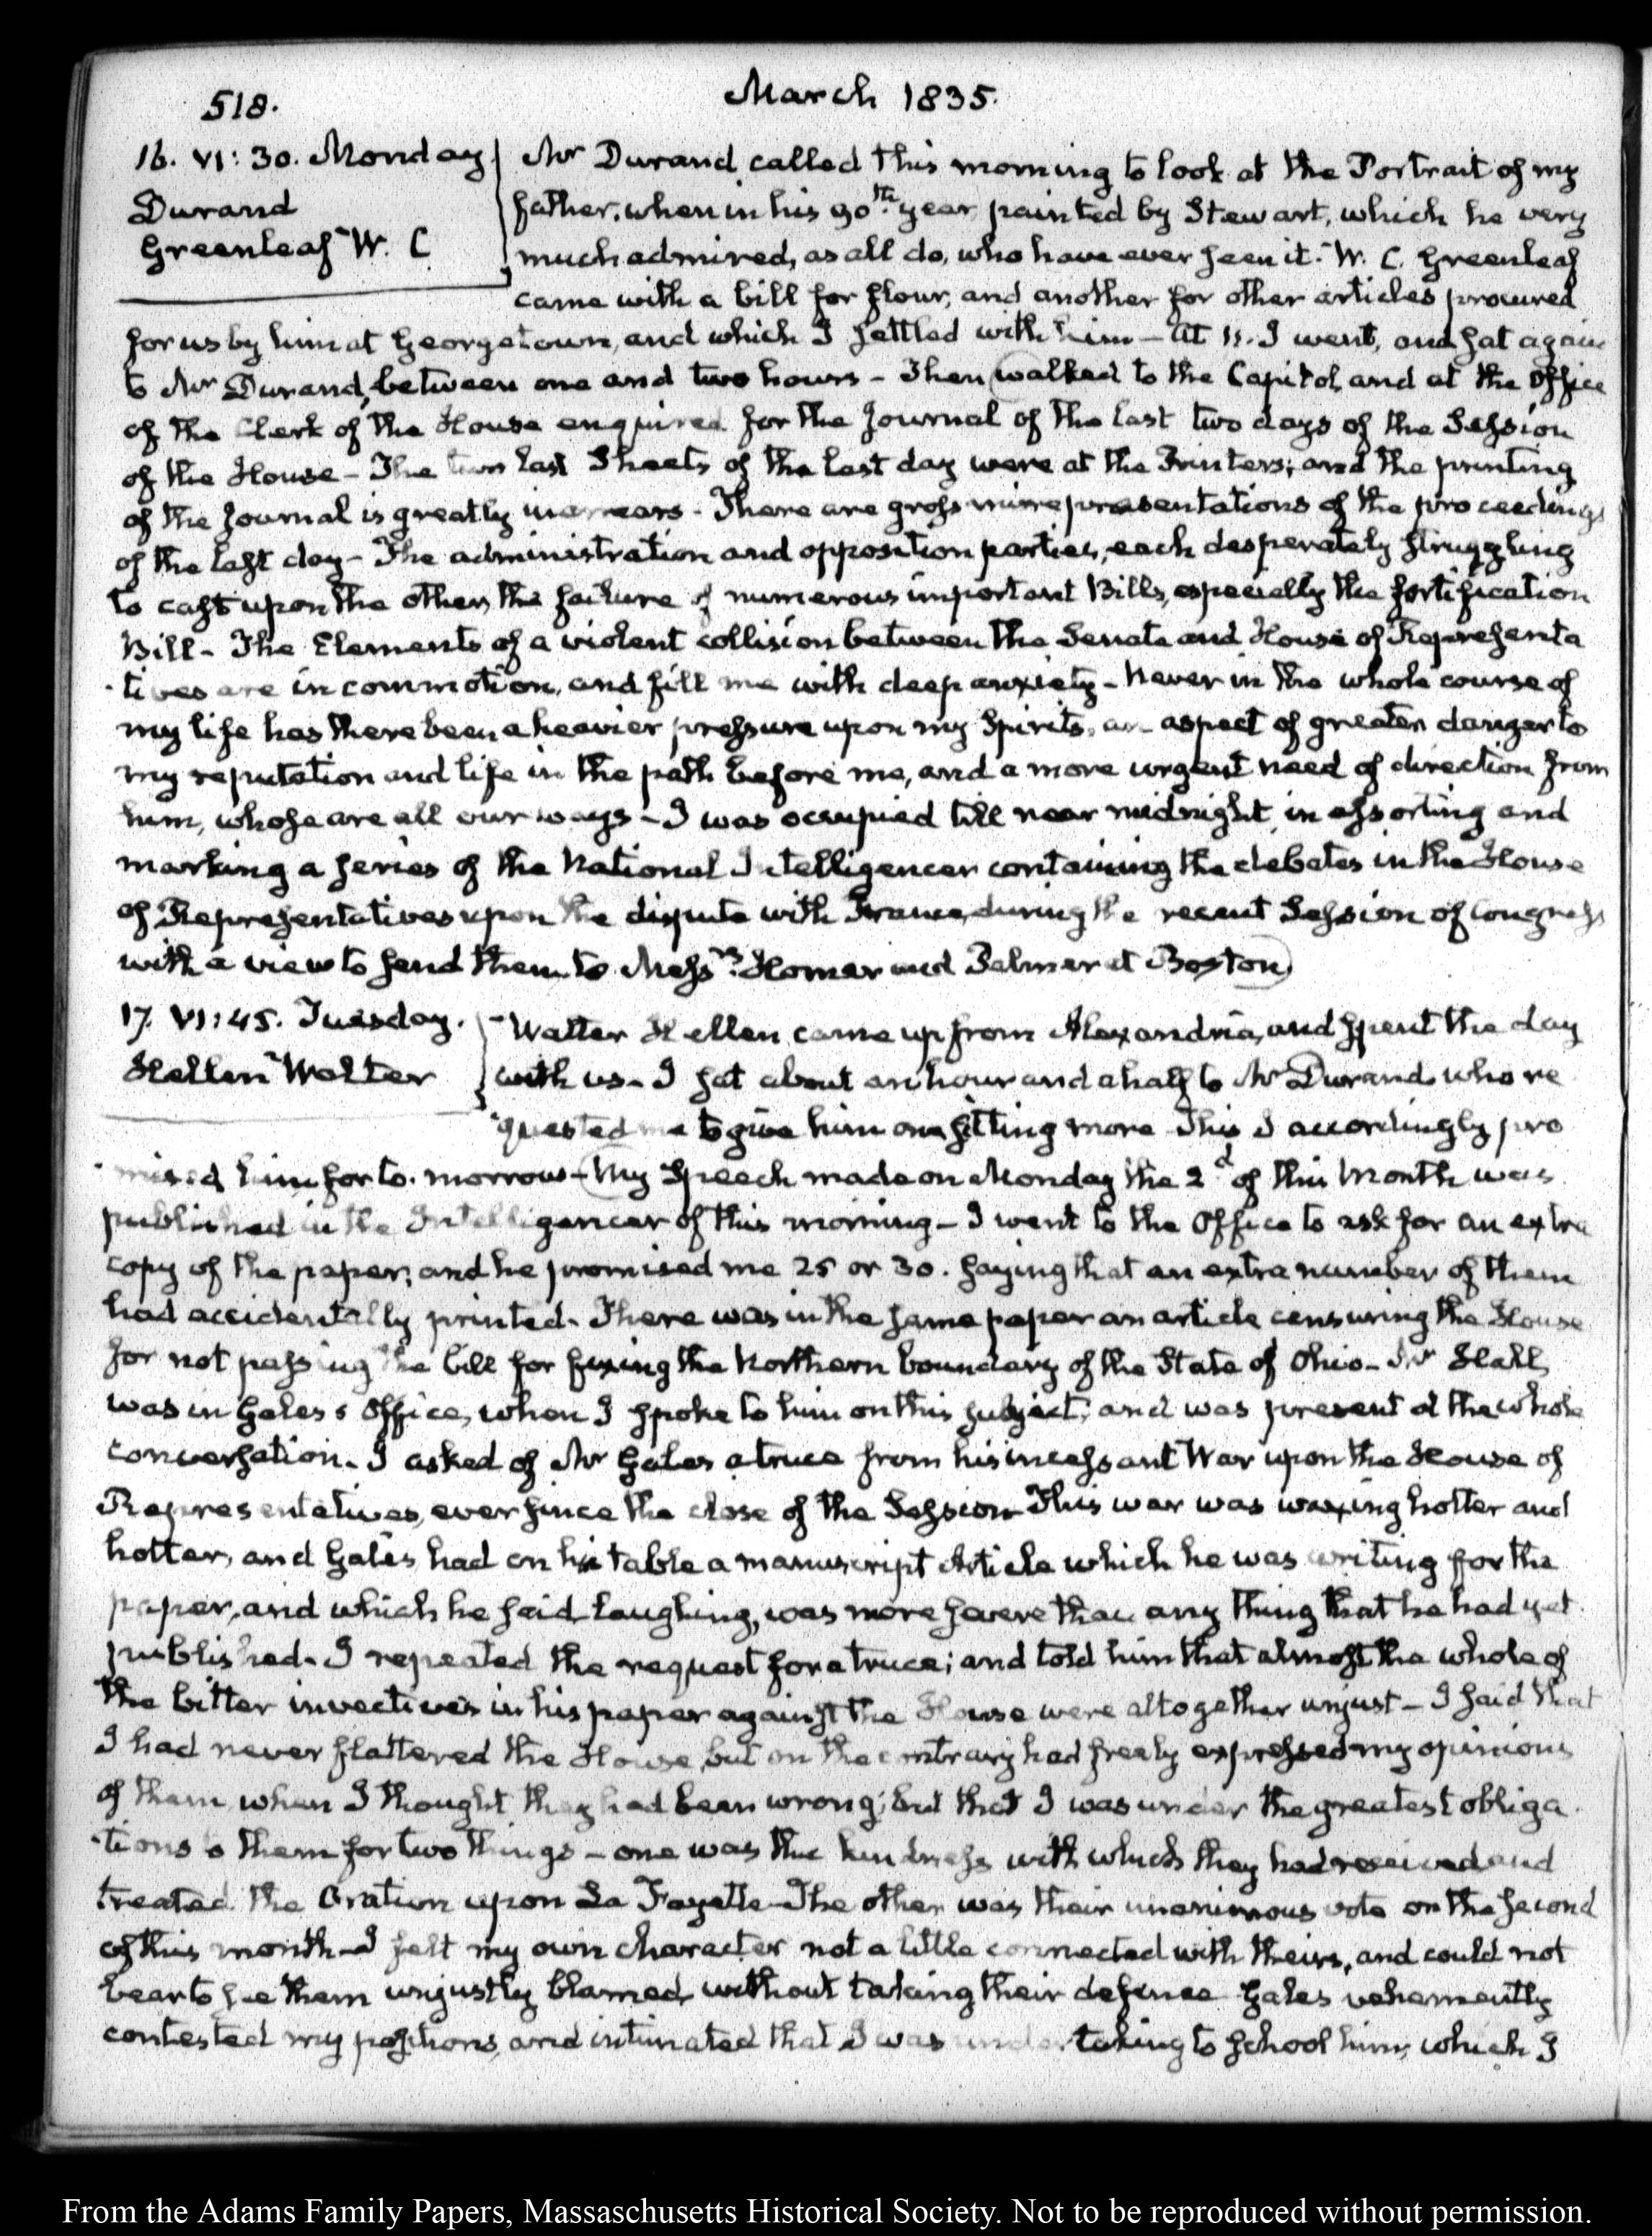 518.
March 1835.
16. VI: 30. Monday
Durand
Greenleaf W. C
Mr Durand called this morning to look at the Portrait of my
father, when in his 90th. year, painted by Stewart, which he very
much admired, as all do, who have ever seen it. W. C. Greenleaf
came with a bill for flour, and another for other articles procured
for us by him at Georgetown, and which I settled with him — At 11. I went, and sat again
to Mr Durand, between one and two hours — Then walked to the Capitol, and at the Office
of the Clerk of the House enquired for the Journal of the last two days of the Session
of the House — The two last Sheets of the last day were at the Printers; and the printing
of the Journal is greatly in arrears. There are gross misrepresentations of the proceedings
of the last day — The administration and opposition parties, each desperately struggling
to cast upon the other, the failure of numerous important Bills, especially the fortification
Bill — The Elements of a violent collision between the Senate and House of Representa
tives are in commotion, and fill me with deep anxiety — Never in the whole course of
my life has there been a heavier pressure upon my Spirits, an aspect of greater danger to
my reputation and life in the path before me, and a more urgent need of direction from
him, whose are all our ways — I was occupied till near midnight, in assorting and
marking a series of the National Intelligencer containing the debates in the House
of Representatives upon the dispute with France, during the recent Session of Congress
with a view to send them to Messrs. Homer and Palmer at Boston
17. VI: 45. Tuesday.
Hellen Walter
Walter Hellen came up from Alexandria, and spent the day
with us — I sat about an hour and a half to Mr Durand who re
quested me to give him one sitting more This I accordingly pro
mised him for to-morrow — My Speech made on Monday the 2d of this Month was
published in the Intelligencer of this morning — I went to the Office to ask for an extra
copy of the paper; and he promised me 25 or 30. saying that an extra number of them
had accidentally printed. There was in the same paper an article censuring the House
for not passing the bill for fixing the Northern boundary of the State of Ohio — Hall,
was in Gales's Office, when I spoke to him on this subject; and was present at the whole
conversation. I asked of Mr Gales a truce from his incessant War upon the House of
Representatives, ever since the close of the Session This war was waxing hotter and
hotter, and Gales had on his table a manuscript Article which he was writing for the
paper, and which he said laughing, was more severe than any thing that he had yet
published. I repeated the request for a truce; and told him that almost the whole of
the bitter invectives in his paper against the House were altogether unjust — I said that
I had never flattered the House, but on the contrary had freely expressed my opinions
of them, when I thought they had been wrong; but that I was under the greatest obliga
tions to them for two things — one was the kindness with which they had received and
treated the Oration upon La Fayette — The other was their unanimous vote on the second
of this month — I felt my own character not a little connected with theirs, and could not
bear to see them unjustly blamed, without taking their defence Gales vehemently
contested my positions, and intimated that I was undertaking to school him; which I
From the Adams Family Papers, Massaschusetts Historical Society. Not to be reproduced without permission.